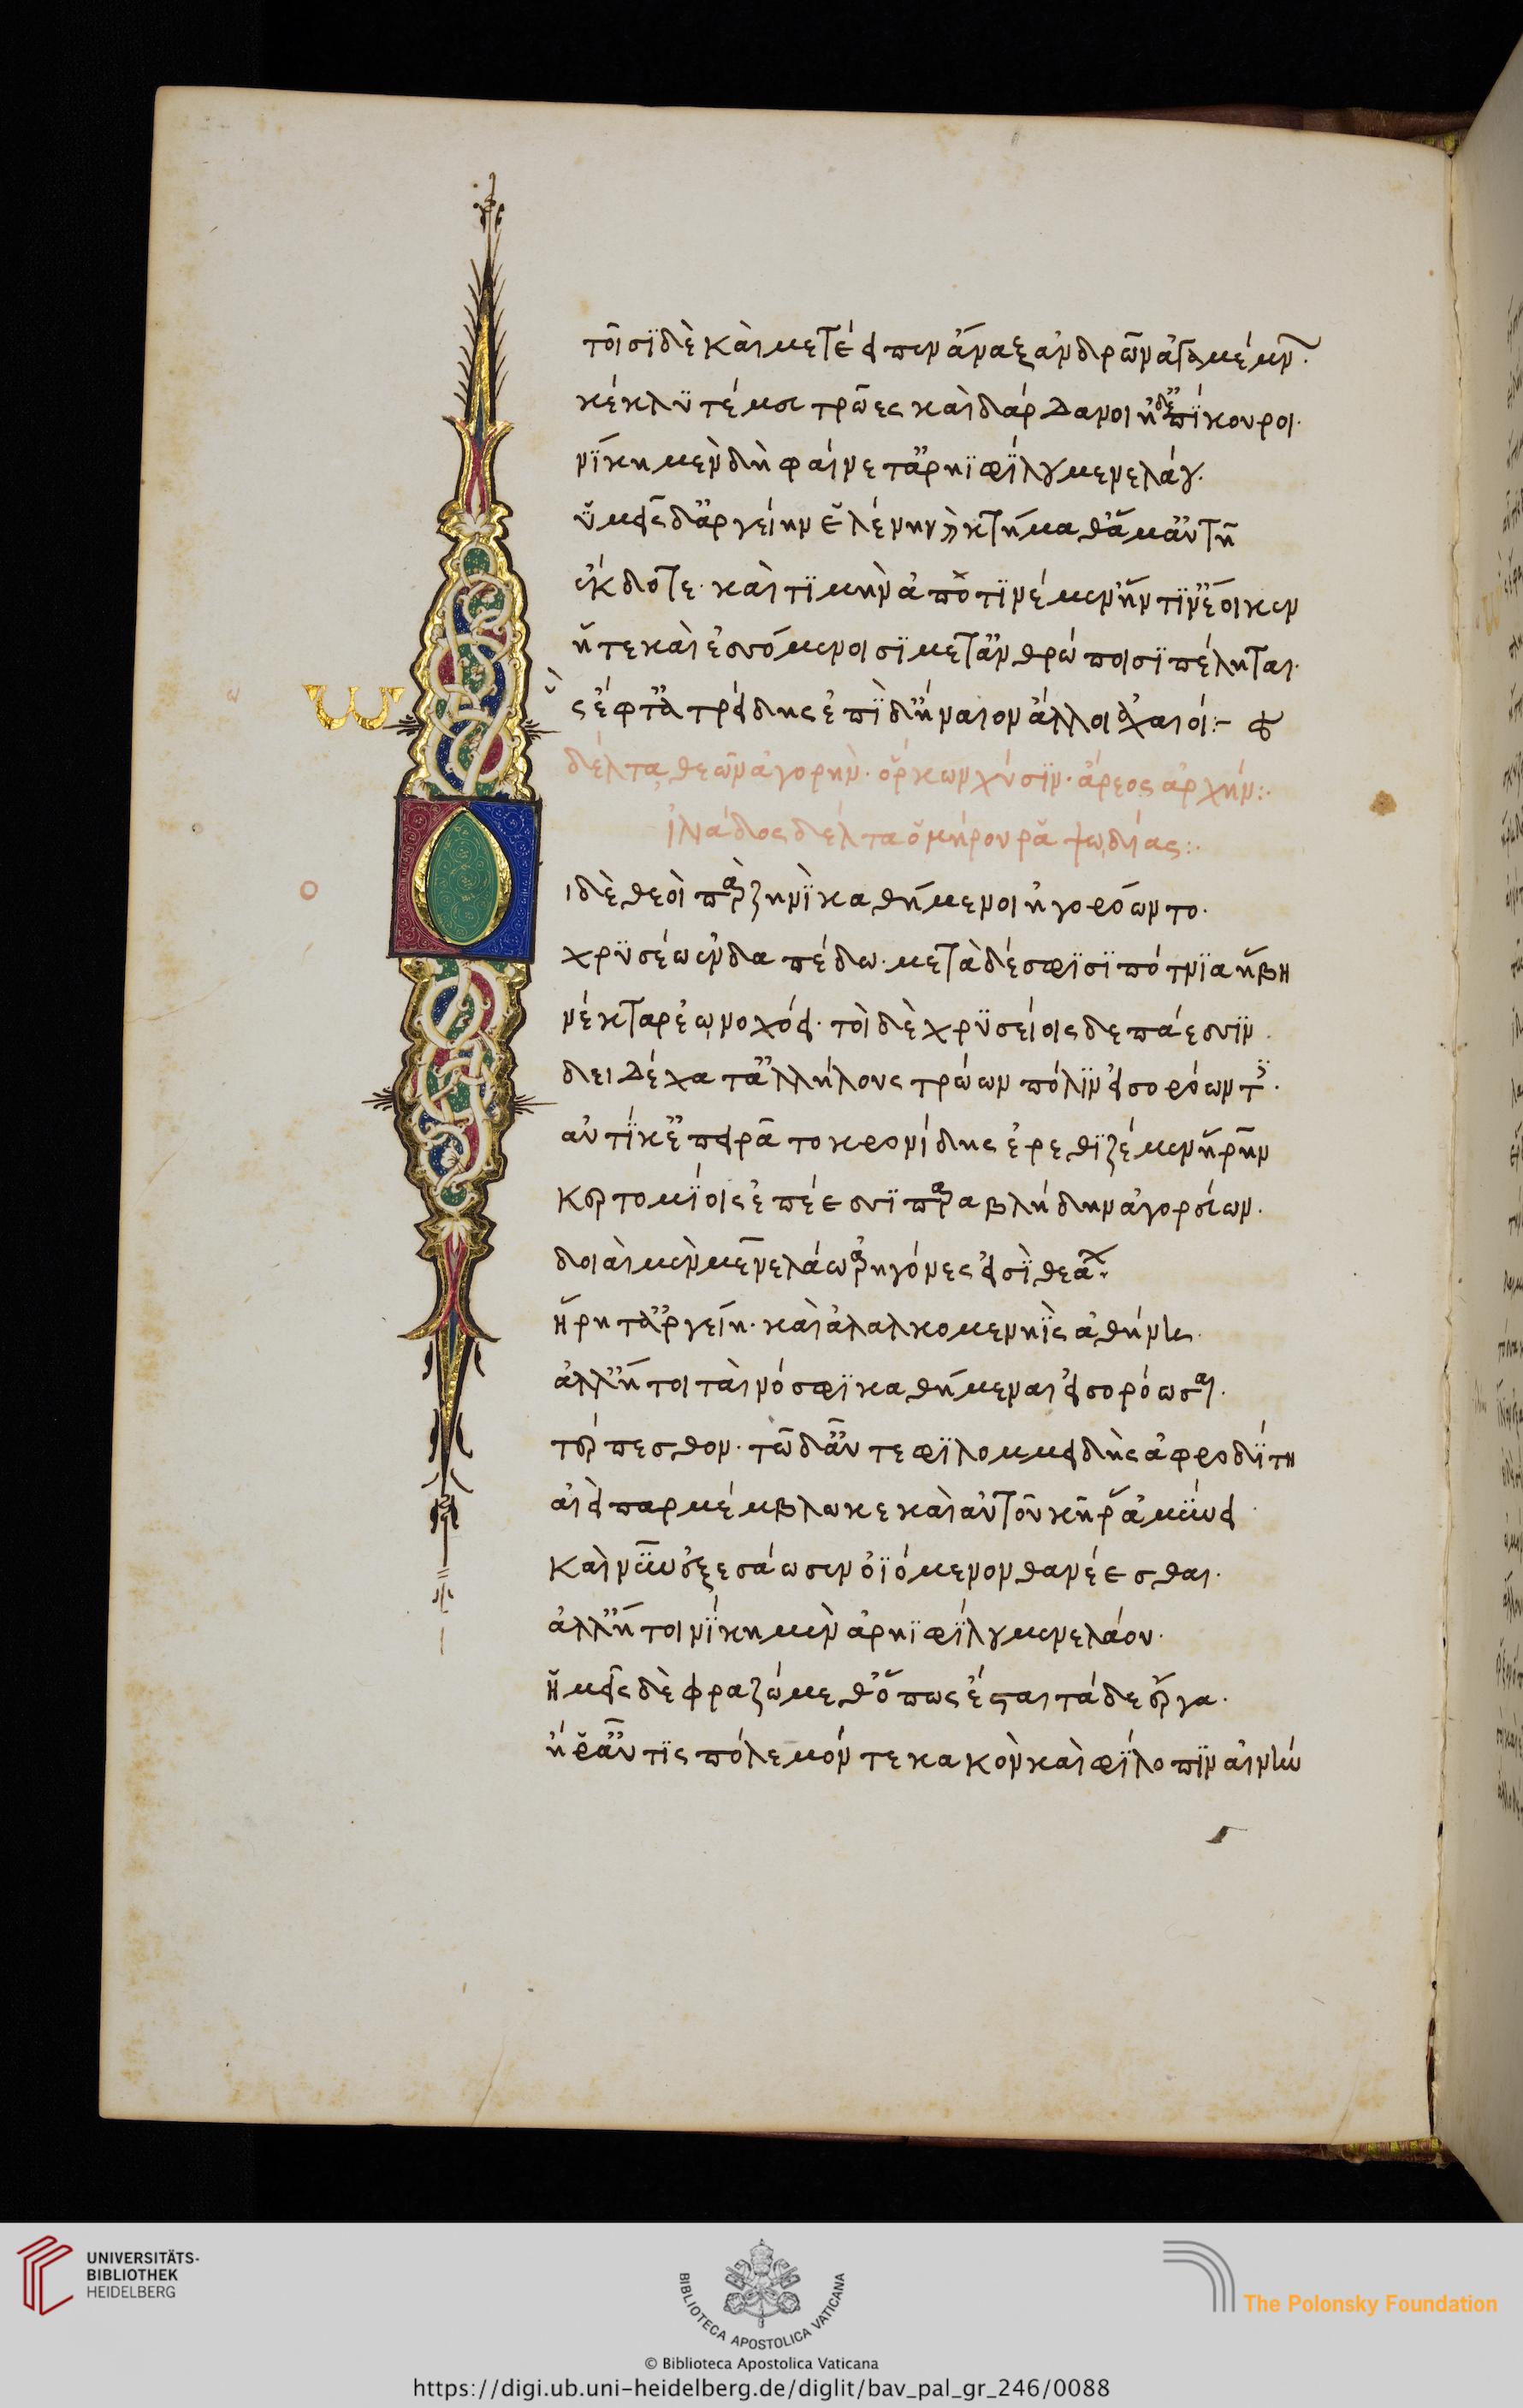 τοῖσι δὲ καὶ μετέειπεν ἄναξ ἀνδρῶν ἀγαμέμνων·
κέκλυτέ μευ τρῶες καὶ δάρδανοι ἠδ' ἐπίκουροι·
νίκη μὲν δὴ φαίνετ' ἀρηϊφίλου μενελάου·
ὑμεῖς δ' ἀργείην ἑλένην καὶ κτήμαθ' ἅμ' αὐτῆ
ἔκδοτε· καὶ τιμὴν ἀποτινέμεν ἥν τιν' ἔοικεν
ἥ τε καὶ ἐσσομένοισι μετ' ἀνθρώποισι πέληται·
ω ὣς ἔφατ' ἀτρείδης ἐπὶ δ' ἤνεον ἄλλοι ἀχαιοί:-
δέλτα θεῶν ἀγορὴν· ὅρκων χύσιν· ἄρεος ἀρχήν:·
ἰλιάδος δέλτα ὁμήρου ῥαψωδίας:·
ο Οἱ δὲ θεοὶ παρ ζηνὶ καθήμενοι ἠγορόωντο·
χρυσέω ἐν δαπέδω· μετὰ δέ σφισι πότνια ἥβη
νέκταρ ἐωνοχόει· τοὶ δὲ χρυσείοις δεπάεσσιν
δειδέχατ' ἀλλήλους τρώων πόλιν εἰσορόωντες·
αὐτίκ' ἐπειρᾶτο κρονίδης ἐρεθιζέμεν ἥρην
κερτομίοις ἐπέεσσι παραβλήδην ἀγορεύων·
δοιαὶ μὲν μενελάω ἀρηγόνες εἰσὶ θεάων·
ἥρη τ' ἀργείη· καὶ ἀλαλκομενηῒς ἀθήνη·
ἀλλ' ἤτοι ταὶ νόσφι καθήμεναι εἰσορόωσαι·
τέρπεσθον· τῶ δ' αὖτε φιλομμειδὴς ἀφροδίτη
αἰεὶ παρμέμβλωκε καὶ αὐτοῦ κῆρας ἀμύνει
καὶ νῦν ἐξεσάωσεν ὀϊόμενον θανέεσθαι·
ἀλλ' ἤτοι νίκη μὲν ἀρηϊφίλου μενελάου·
ἡμεῖς δὲ φραζώμεθ' ὅπως ἔσται τάδε ἔργα·
ἤ ῥ' αὖτις πόλεμόν τε κακὸν καὶ φύλοπιν αἰνὴν
UNIVERSITÄTS-
BIBLIOTHEK
HEIDELBERG
BIBLIOTECA APOSTOLICA VATICANA
The Polonsky Foundation
© Biblioteca Apostolica Vaticana
https://digi.ub.uni-heidelberg.de/diglit/bav_pal_gr_246/0088